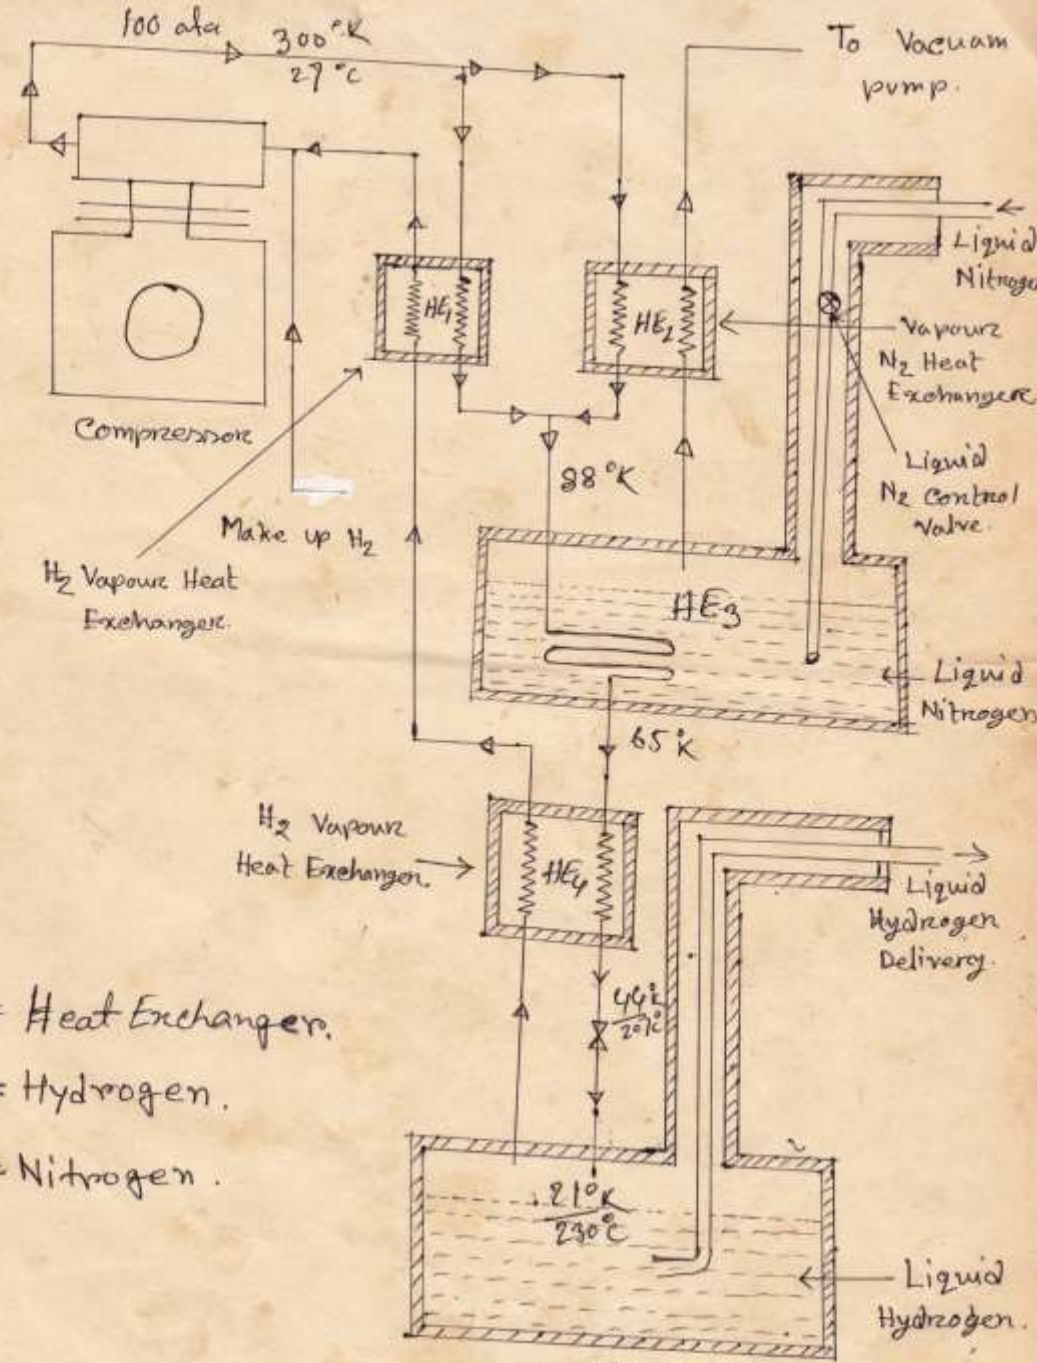 100 ata
300°K
27°C
To Vacuam
pump.
Liquid
Nitroge
HE1
HE2
Vapour
N2 Heat
Exchanger
Compressor
88°K
Liquid
N2 Control
Valve.
Make up H2
H2 Vapour Heat
Exchanger.
HE3
Liquid
Nitrogen
65°K
H2 Vapour
Heat Exchanger.
HE4
Liquid
Hydrogen
Delivery.
44°K
207°C
= Heat Exchanger.
= Hydrogen.
= Nitrogen.
21°K
230°C
Liquid
Hydrogen.